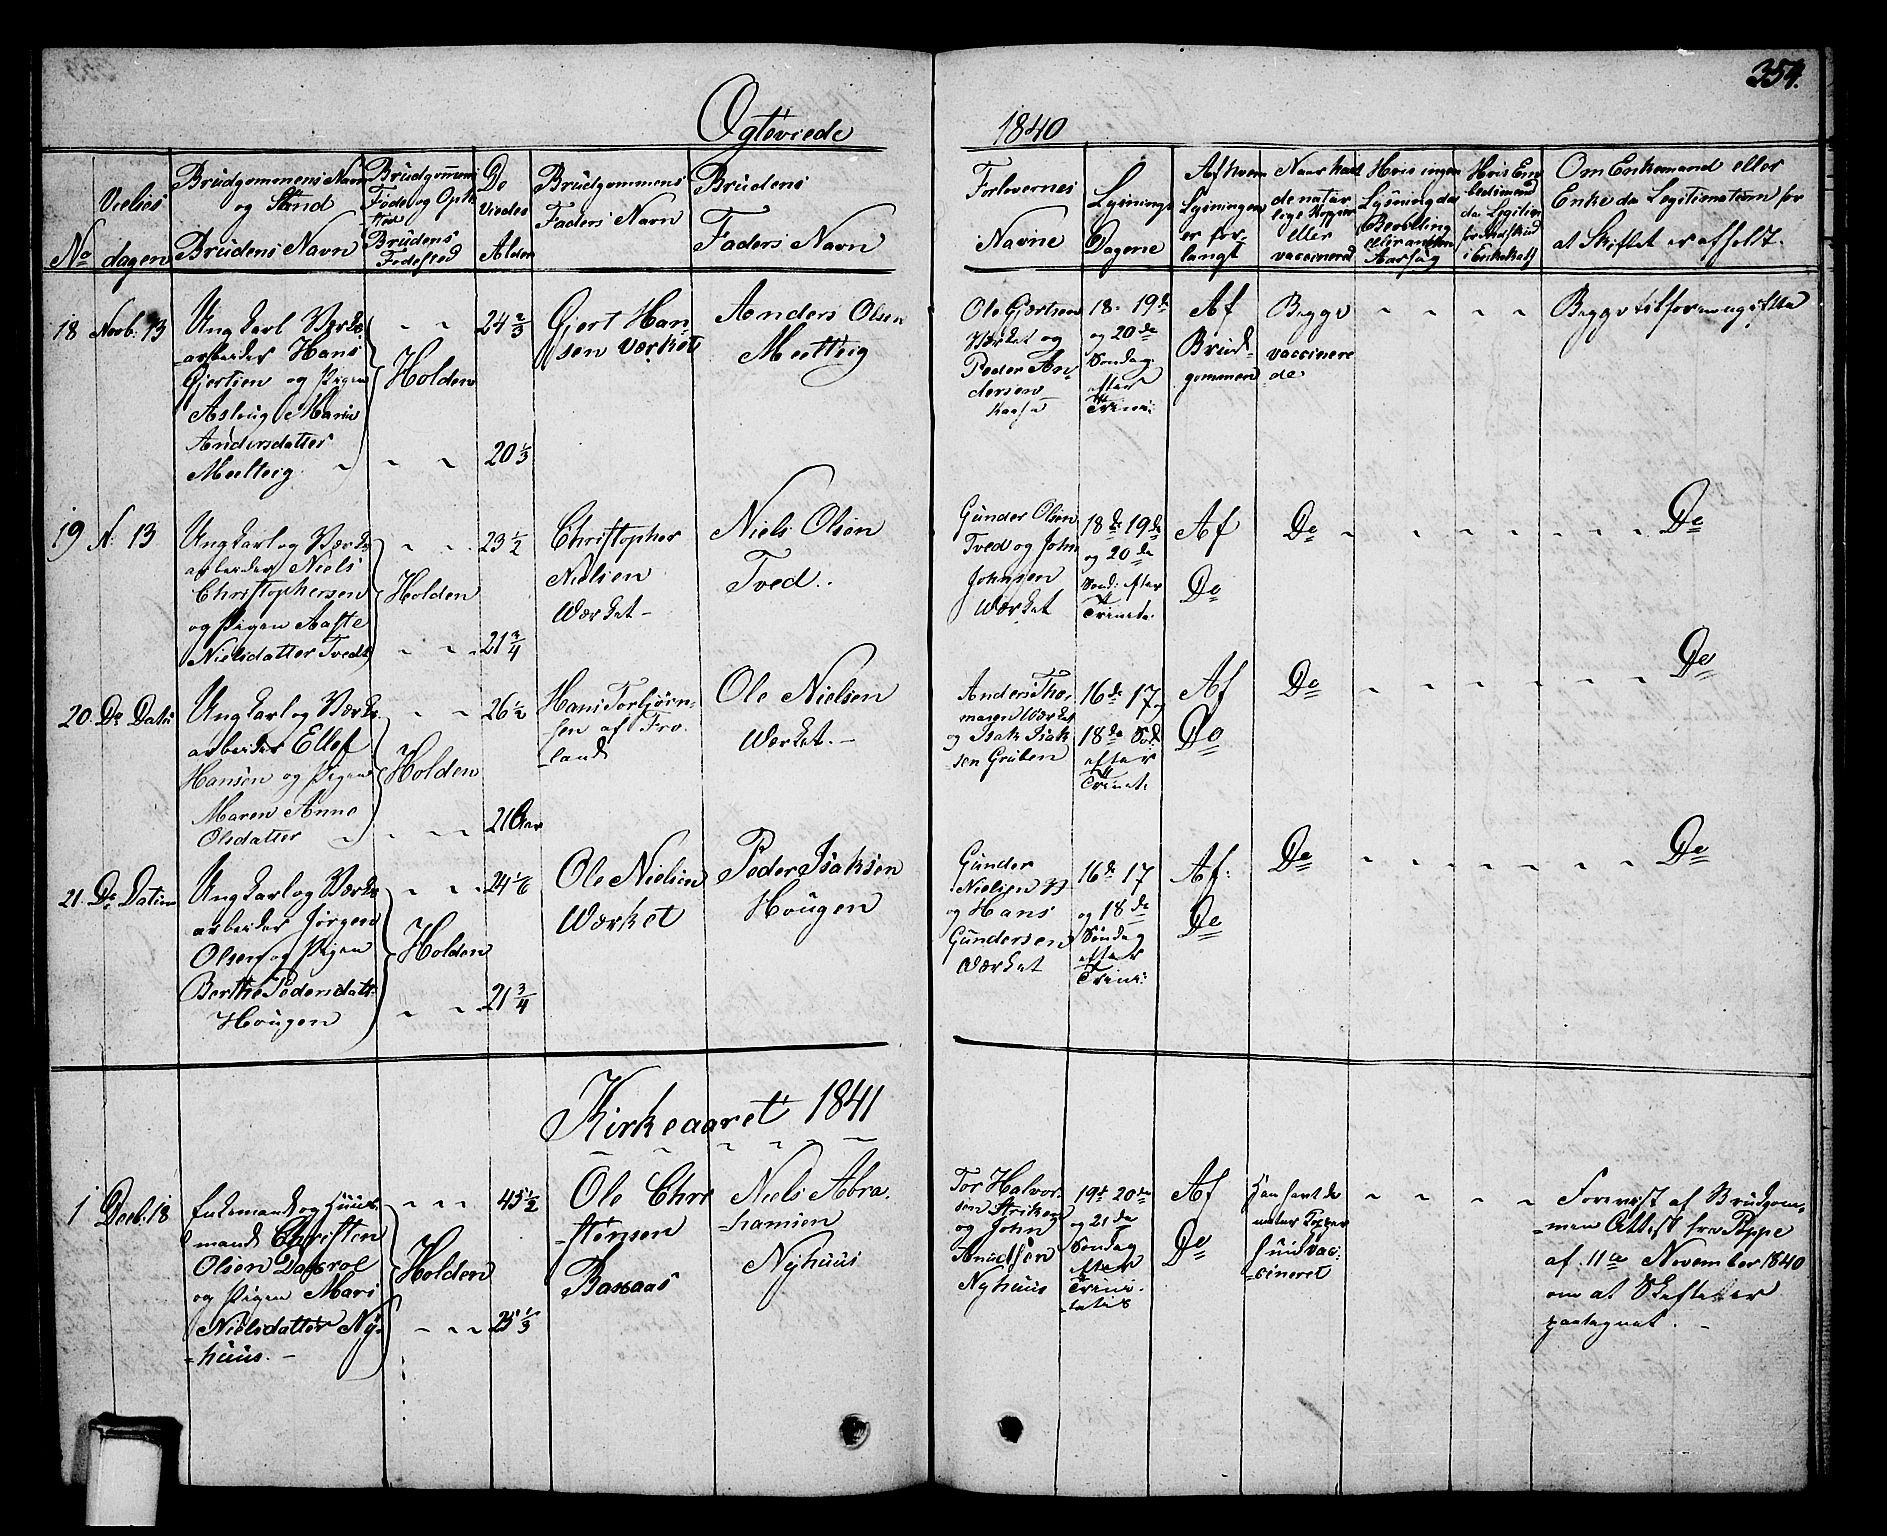 354.
Ogteviede 1840
No
Vielses dagen
Brudgommens Navn
og Stand
Brudens Navn
Brudgommens
Føde og Opk
sted
Brudens
Fødested
De
Viedes
Alder
Brudgommens
Faders Navn
Brudens
Faders Navn
Forlovernes
Navne
Lysnings
Dagene
Af hvem
Lysningen
er for-
langt
Naar havt
de natur
lige Kopper
eller
vaccineret
Hvis ingen
Lysning da
Bevilling
eller anden
Aarsag
Hvis Em
bedsmand
da Legition
for Indskud
i Enkekass
Om Enkemand eller
Enke da Legitimation for
at Skiftet er afholdt.
18 Novb. 13
Ungkarl Værks
arbeider Hans
Gjertsen og Pigen
Aslaug Marie
Andersdatter
Meelteig
Holden
24 2/3
20 1/3
Gjert Han
sen Værket
Anders Olsen
Meelteig
Ole Gjertsen
Værket og
Peder An
dersen
Kaasa
18. 19de
og 20de
Søndag
efter
Trini:
Af
Brud-
gommen
Begge
vaccinere
de.
Begge tilforn ugifte
19 N: 13
Ungkarl og Værks
arbeider Niels
Christophersen
og Pigen Aaste
Nielsdatter Tvedt
Holden
23 1/2
21 3/4
Christopher
Nielsen
Værket -
Niels Olsen
Tved.
Gunder Olsen
Tved og John
Johnsen
Værket
18de 19de
og 20de
Sønd: efter
Trinita.
Af
Do
Do
Do
20. Do Dato
Ungkarl og Værks
arbeider Ellef
Hansen og Pigen
Maren Anne
Olsdatter
Holden
26 1/2
21 Aar
Hans Torbjørn-
sen af Fro-
land
Ole Nielsen
Værket. -
Anders Tho-
masen Værket
og Isak Isak
sen Gruben
16de 17 og
18de Sød.
efter
Trinit:
Af
Do
Do
Do
21. Do Datum
Ungkarl og Værks
arbeider Jørgen
Olsen og Pigen
Berthe Pedersdatt:
Hougen
Holden
24 1/6
21 3/4
Ole Nielsen
Værket
Peder Isaksen
Hougen
Gunder
Nielsen
og Hans
Gundersen
Værket
16de 17
og 18de
Søndag
efter
Trini:
Af:
Do
Do
Do
Kirkeaaret 1841
1 Decb. 18
Enkemand og Huus
mand Christen
Olsen
og Pigen Mari
Nielsdatter Ny-
huus. -
Holden
45 1/2
25 1/3
Ole Chri
stensen
Baxaas
Niels Abra-
hamsen
Nyhuus
Tor Halvor
sen Striken
og John
Knudsen
Nyhuus
19de 20de
og 21de
Søndag
efter
Trini-
tatis
Af
Do
Han havt de
natur Kopper
hun vac:
cineret
Foreviist af Brudgom-
men Attest fra Poppe
af 11te November 1840
om at Skiftet er
paategnet. -